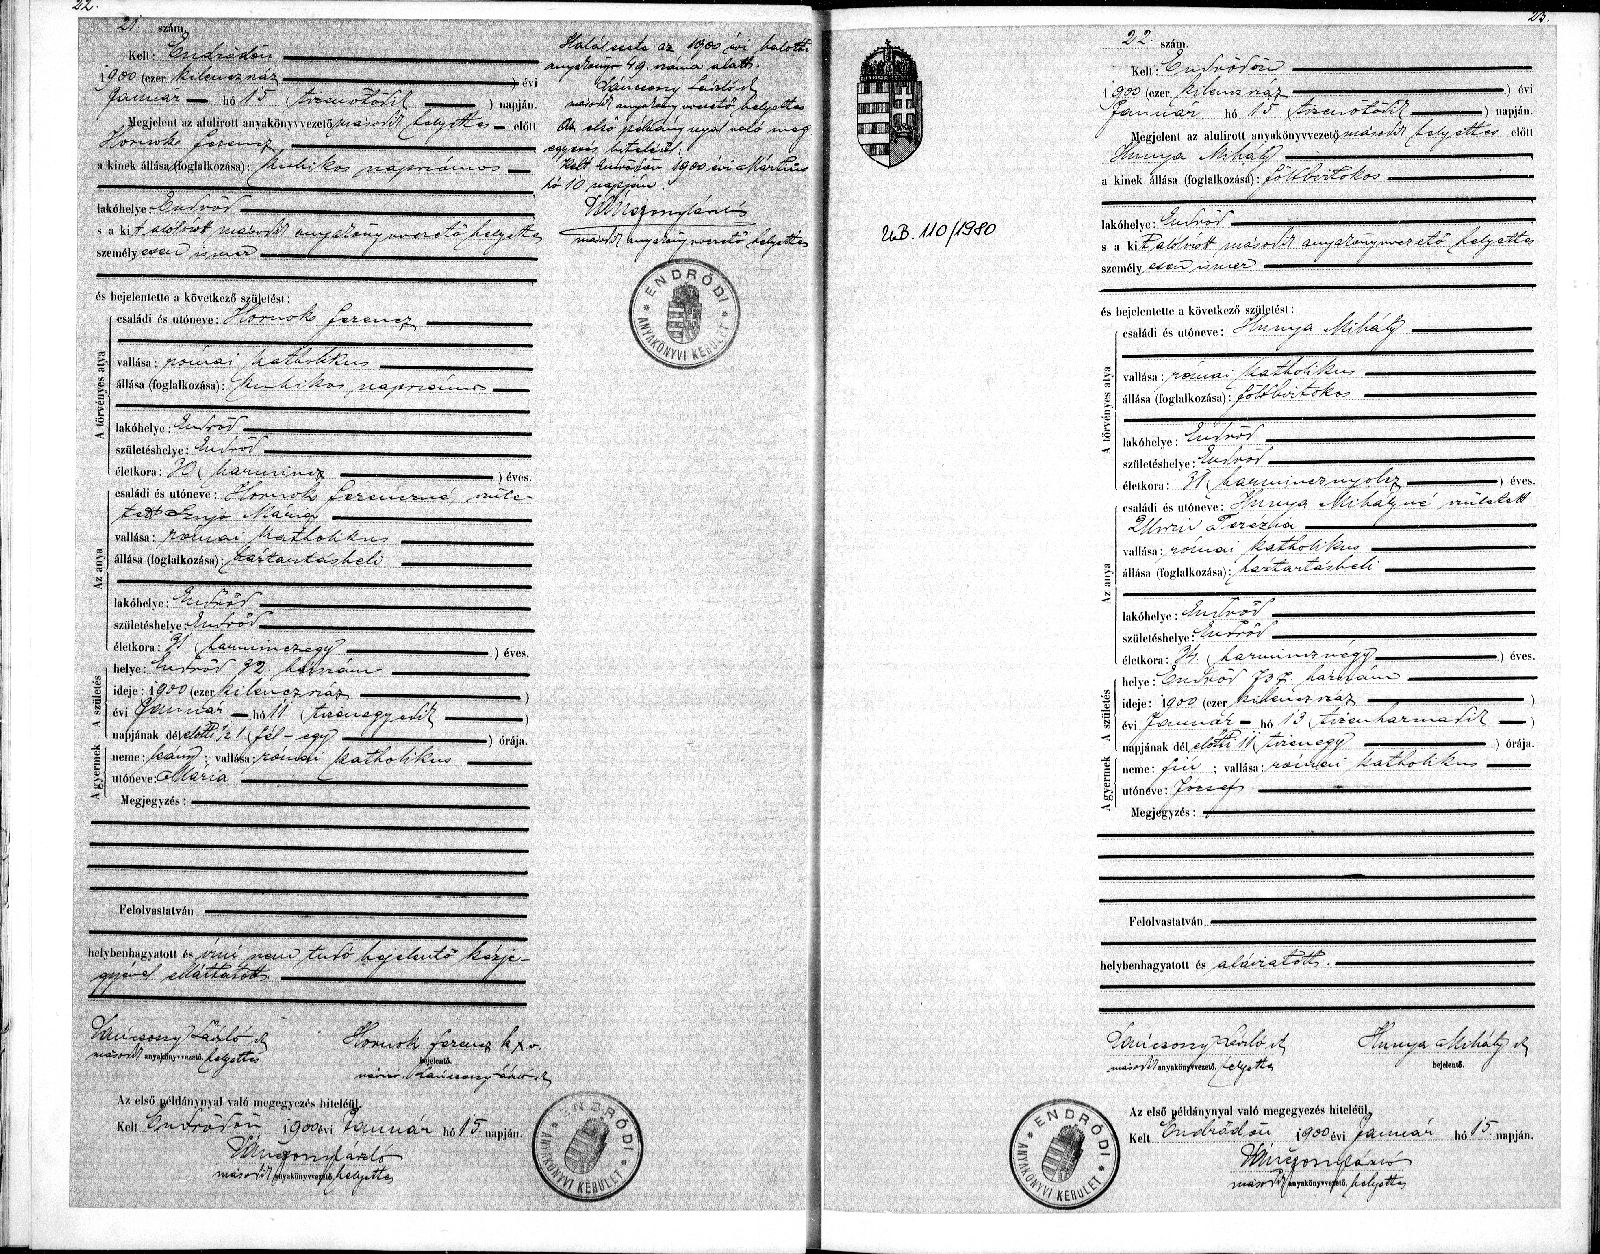 22.
21 szám.
Kelt: Endrődön
1900 (ezer kilenczszáz ) évi
Január hó 15 (tizenötödik ) napján.
Megjelent az alulirott anyakönyvvezető második helyettes előtt
Hornok Ferencz
a kinek állása (foglalkozása): kubikos napszámos
lakóhelye: Endrőd
s a kit alulirott második anyakönyvvezető helyettes
személyesen ismer
és bejelentette a következő születést:
A törvényes atya
családi és utóneve: Hornok Ferencz
vallása: római katholikus
állása (foglalkozása): kubikos, napszámos
lakóhelye: Endrőd
születéshelye: Endrőd
életkora: 30 (harmincz ) éves.
Az anya
családi és utóneve: Hornok Ferenczné, szüle-
tett Mária
vallása: római katholikus
állása (foglalkozása): háztartásbeli
lakóhelye: Endrőd
születéshelye: Endrőd
életkora: 31 (harminczegy ) éves.
A születés
helye: Endrőd 92. házszám
ideje: 1900 (ezer kilenczszáz )
évi Január hó 11 (tizenegyedik )
napjának dél előtti 1/2 1 (fél-egy ) órája.
A gyermek
neme: leány; vallása: római katholikus
utóneve: Mária
Megjegyzés:
Felolvastatván
helybenhagyatott és irni nem tudó bejelentő kézje-
gyével elláttatott
Lánczony László sk
második anyakönyvvezető. helyettes
Hornok Ferencz k x v
bejelentő.
Az első példánynyal való megegyezés hiteléül.
Kelt Endrődön 1900 évi Január hó 15 napján.
második anyakönyvvezető. helyettes
ENDRŐDI ANYAKÖNYVI KERÜLET
Halálesete az 1900 évi halotti
anyakönyv 49. száma alatt.
második anyakönyvvezető helyettes
Az első példánynyal való meg
egyezés hiteléül.
Kelt Endrődön 1900 évi Márczius
hó 10 napján.
második anyakönyvvezető helyettes
ENDRŐDI ANYAKÖNYVI KERÜLET
23.
110/1980
22 szám.
Kelt: Endrődön
1900 (ezer kilenczszáz ) évi
Január hó 15 (tizenötödik ) napján.
Megjelent az alulirott anyakönyvvezető második helyettes előtt
Hunya Mihály
a kinek állása (foglalkozása): földbirtokos
lakóhelye: Endrőd
s a kit alulirott második anyakönyvvezető helyettes
személyesen ismer
és bejelentette a következő születést:
A törvényes atya
családi és utóneve: Hunya Mihály
vallása: római katholikus
állása (foglalkozása): földbirtokos
lakóhelye: Endrőd
születéshelye: Endrőd
életkora: 38 (harmincznyolcz ) éves.
Az anya
családi és utóneve: Hunya Mihályné született
Terézia
vallása: római katholikus
állása (foglalkozása): háztartásbeli
lakóhelye: Endrőd
születéshelye: Endrőd
életkora: 34 (harmincznégy ) éves.
A születés
helye: Endrőd 707 házszám
ideje: 1900 (ezer kilenczszáz )
évi Január hó 13 (tizenharmadik )
napjának dél előtti 11 (tizenegy ) órája.
A gyermek
neme: fiú; vallása: római katholikus
utóneve: József
Megjegyzés:
Felolvastatván
helybenhagyatott és aláiratott.
Lánczony László sk
második anyakönyvvezető. helyettes
Hunya Mihály sk
bejelentő.
Az első példánynyal való megegyezés hiteléül.
Kelt Endrődön 1900 évi Január hó 15 napján.
második anyakönyvvezető. helyettes
ENDRŐDI ANYAKÖNYVI KERÜLET